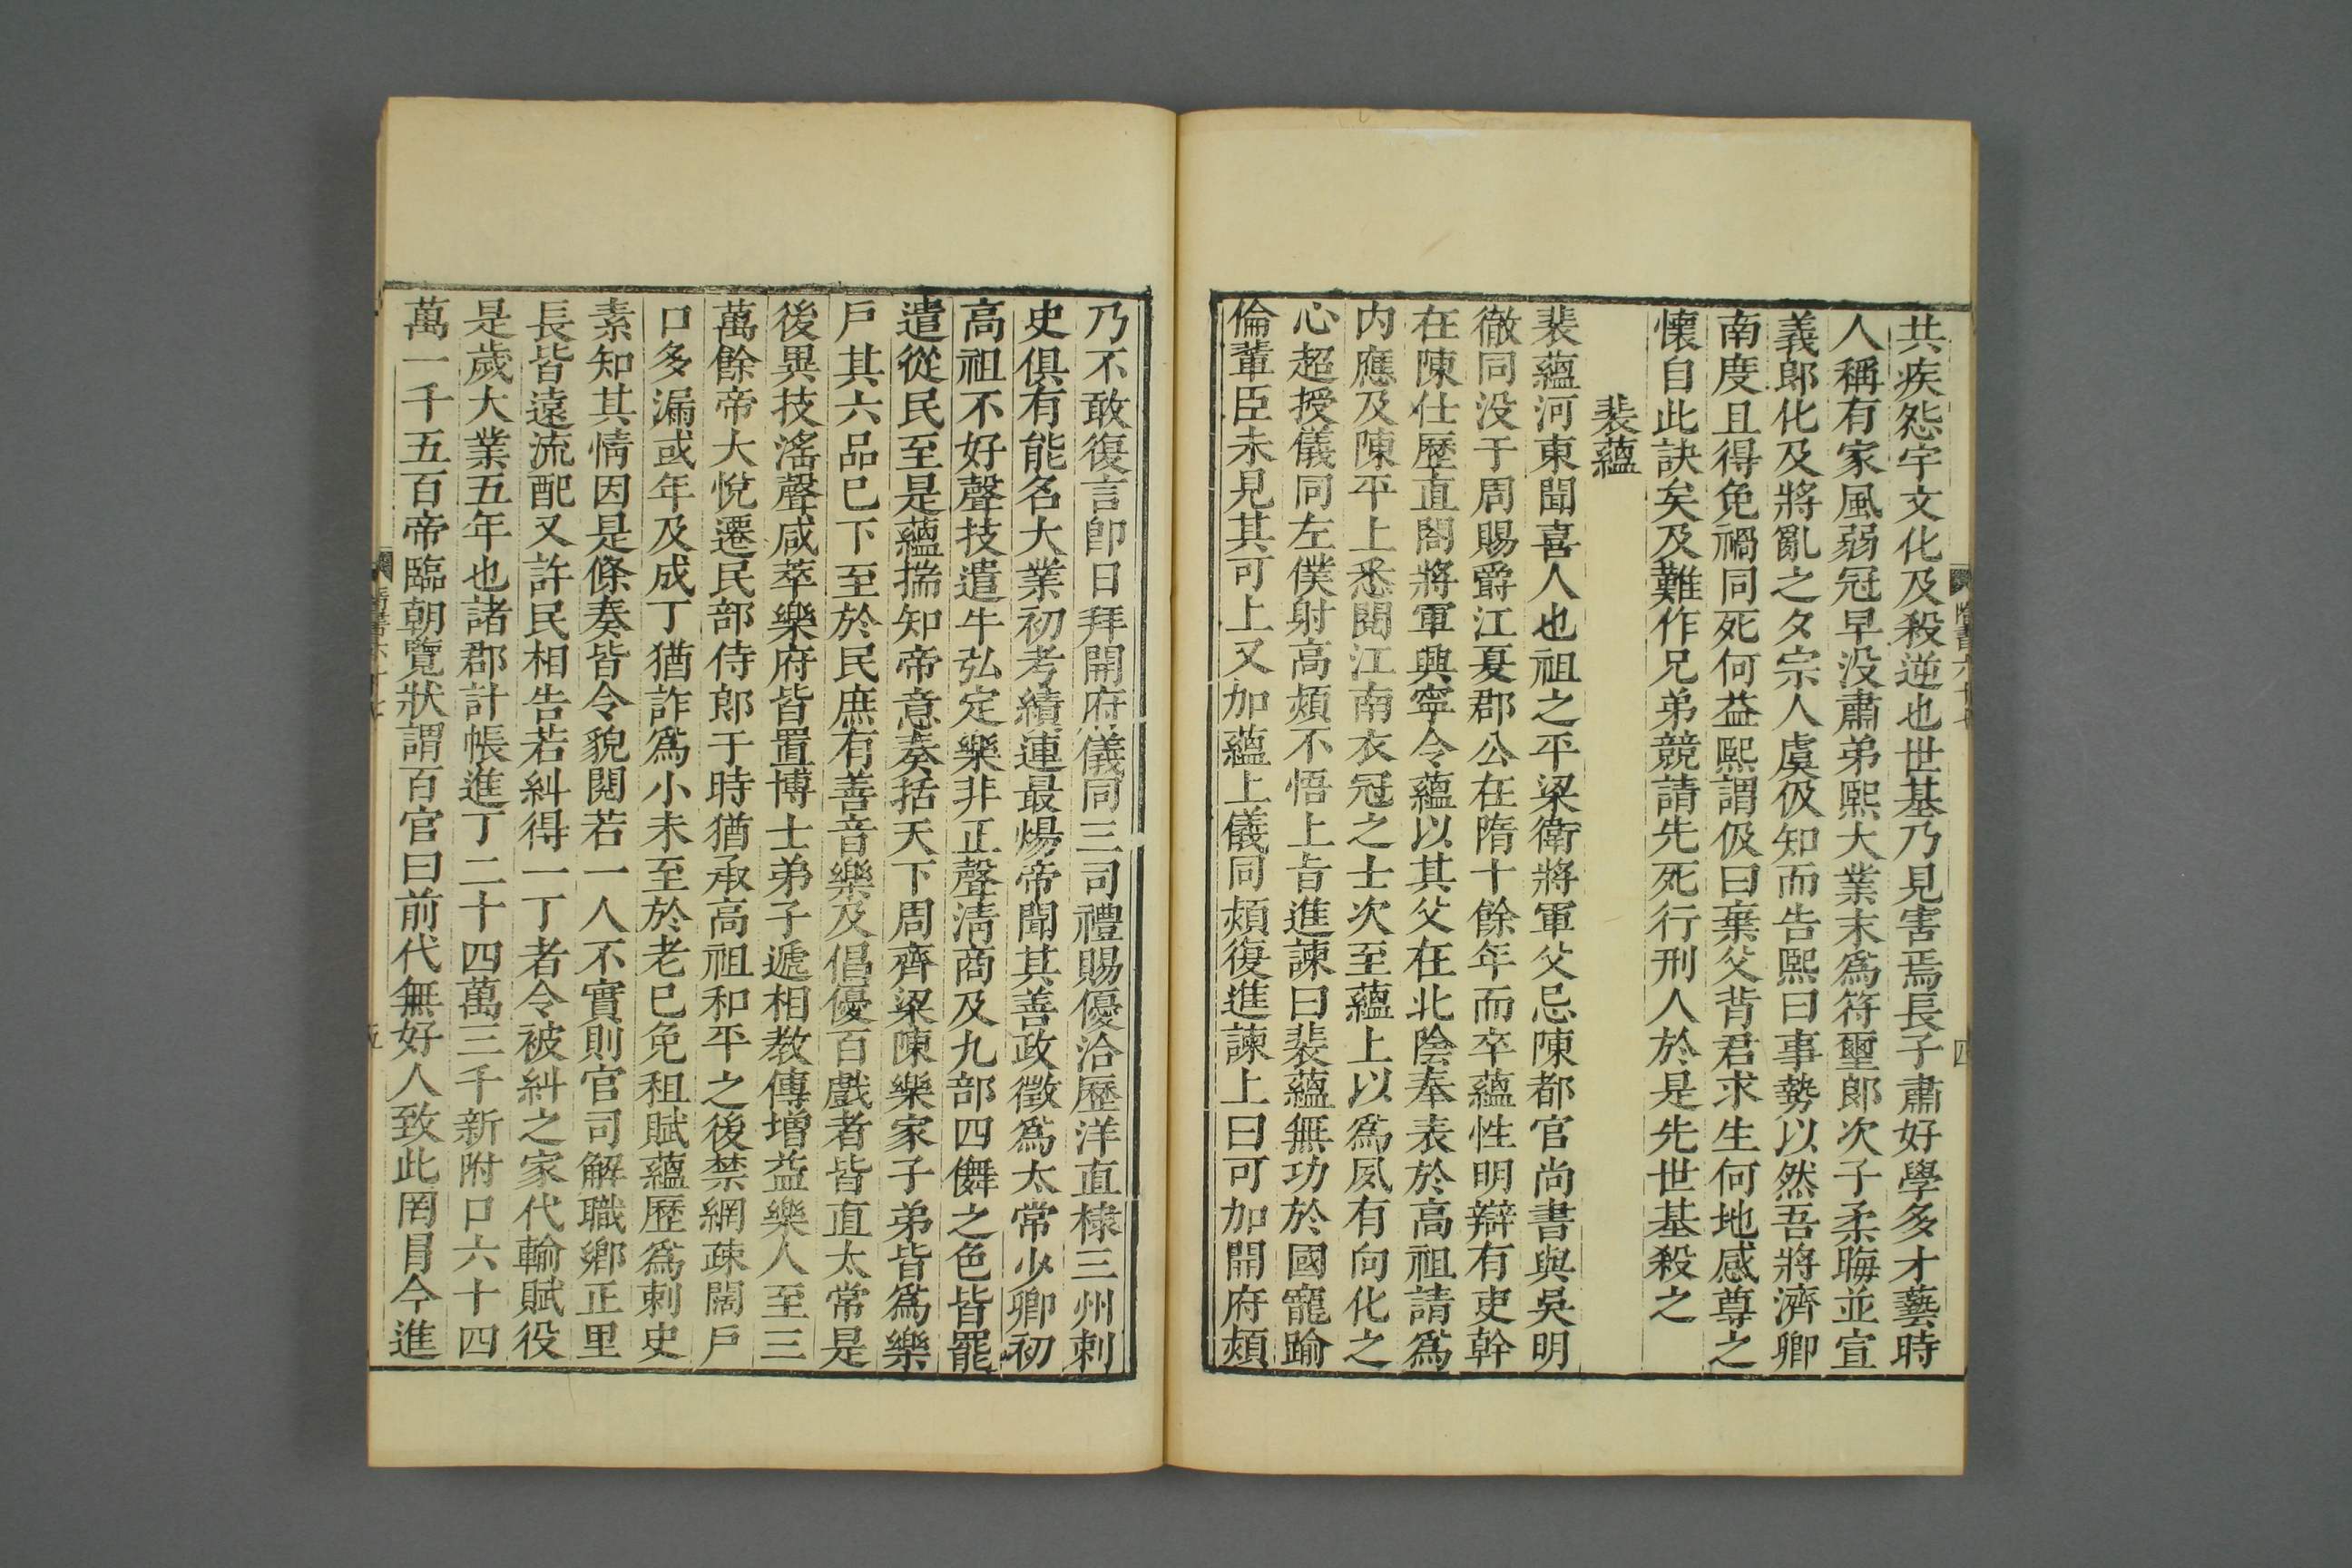 共疾怨宇文化及殺逆也世基乃見害焉長子肅好學多才藝時
人稱有家風弱冠早没肅弟熙大業末爲符璽郎次子柔晦並宣
義郎化及將亂之夕宗人虞伋知而告熙曰事勢以然吾將濟卿
南度且得免禍同死何益熙謂伋曰棄父背君求生何地感尊之
懷自此訣矣及難作兄弟競請先死行刑人於是先世基殺之
裴蘊
裴蘊河東聞喜人也祖之平梁衛將軍父忌陳都官尚書與吳明
徹同没于周賜爵江夏郡公在隋十餘年而卒蘊性明辯有吏幹
在陳仕歷直閤將軍興寧令蘊以其父在北陰奉表於高祖請爲
内應及陳平上悉閱江南衣冠之士次至蘊上以爲夙有向化之
心超授儀同左僕射高熲不悟上旨進諫曰裴蘊無功於國寵踰
倫輩臣未見其可上又加蘊上儀同熲復進諫上曰可加開府熲
隋書六十七
四
乃不敢復言卽日拜開府儀同三司禮賜優洽歷洋直棣三州刺
史俱有能名大業初考績連最煬帝聞其善政徵爲太常少卿初
高祖不好聲技遣牛弘定樂非正聲淸商及九部四儛之色皆罷
遣從民至是蘊揣知帝意奏括天下周齊梁陳樂家子弟皆爲樂
戶其六品已下至於民庶有善音樂及倡優百戲者皆直太常是
後異技淫聲咸萃樂府皆置博士弟子遞相教傳增益樂人至三
萬餘帝大悅遷民部侍郎于時猶承高祖和平之後禁網疎闊戶
口多漏或年及成丁猶詐爲小未至於老已免租賦蘊歷爲刺史
素知其情因是條奏皆令貌閱若一人不實則官司解職鄉正里
長皆遠流配又許民相告若糾得一丁者令被糾之家代輸賦役
是歲大業五年也諸郡計帳進丁二十四萬三千新附口六十四
萬一千五百帝臨朝覽狀謂百官曰前代無好人致此罔冒今進
隋書六十七
五